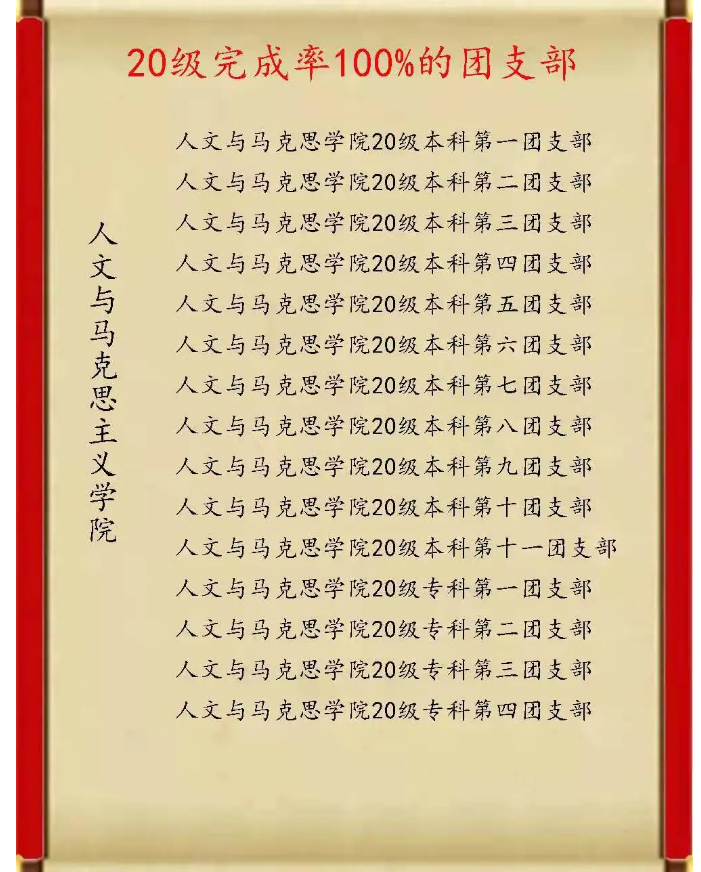 20级完成率100%的团支部
人文与马克思主义学院
人文与马克思学院20级本科第一团支部
人文与马克思学院20级本科第二团支部
人文与马克思学院20级本科第三团支部
人文与马克思学院20级本科第四团支部
人文与马克思学院20级本科第五团支部
人文与马克思学院20级本科第六团支部
人文与马克思学院20级本科第七团支部
人文与马克思学院20级本科第八团支部
人文与马克思学院20级本科第九团支部
人文与马克思学院20级本科第十团支部
人文与马克思学院20级本科第十一团支部
人文与马克思学院20级专科第一团支部
人文与马克思学院20级专科第二团支部
人文与马克思学院20级专科第三团支部
人文与马克思学院20级专科第四团支部